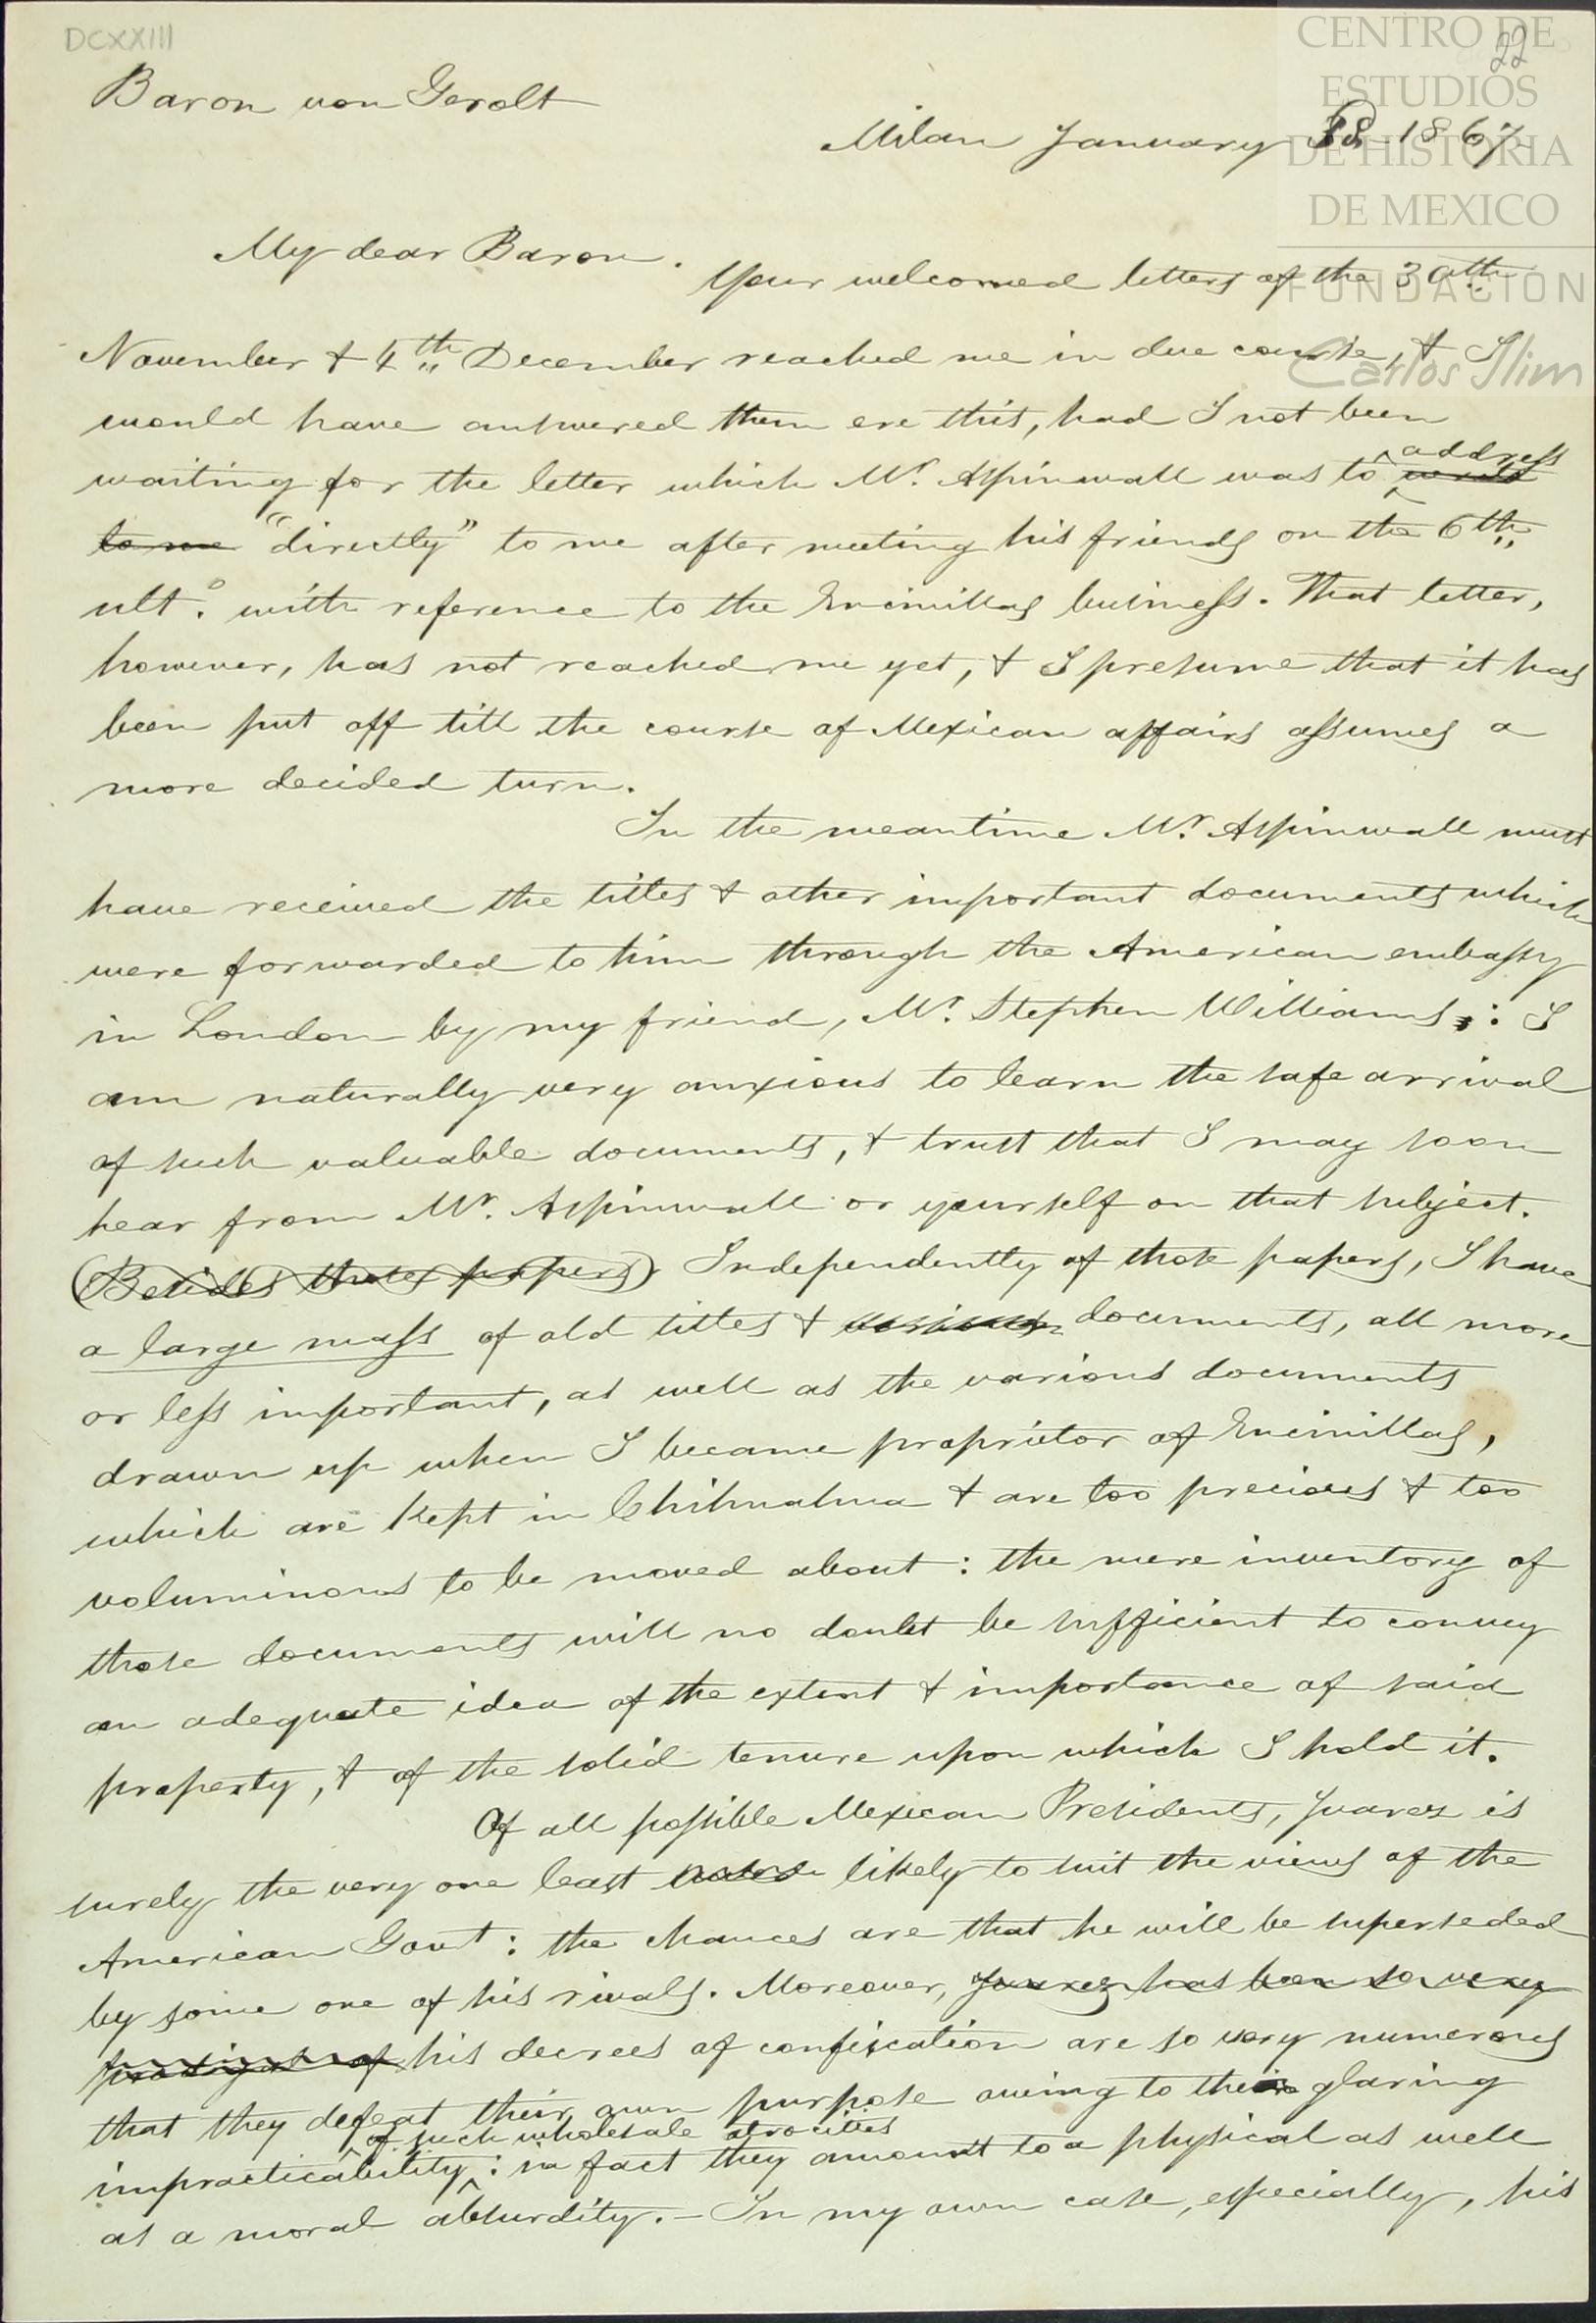 DCXXIII
22
CENTRO DE
ESTUDIOS
DE HISTORIA
DE MEXICO
FUNDACION
Carlos Slim
Baron von Gerolt
Milan January 1867
My dear Baron.
Your welcomed letters of the 30th
November & 4th December reached me in due course, & I
would have answered them ere this, had I not been
waiting for the letter which Mr. Aspinwall was to address
to me "directly" to me after meeting his friends on the 6th
ulto. with reference to the Encinillas business. That letter,
however, has not reached me yet, & I presume that it has
been put off till the course of Mexican affairs assumes a
more decided turn.
In the meantime Mr. Aspinwall must
have received the titles & other important documents which
were forwarded to him through the American embassy
in London by my friend, Mr. Stephen Williams: I
am naturally very anxious to learn the safe arrival
of such valuable documents, & trust that I may soon
hear from Mr. Aspinwall or yourself on that subject.
(Besides those papers) Independently of those papers, I have
a large mass of old titles & documents, all more
or less important, as well as the various documents
drawn up when I became proprietor of Encinillas,
which are kept in Chihuahua & are too precious & too
voluminous to be moved about: the mere inventory of
those documents will no doubt be sufficient to convey
an adequate idea of the extent & importance of said
property, & of the solid tenure upon which I hold it.
Of all possible Mexican Presidents, Juarez is
surely the very one least likely to suit the views of the
American Govt: the chances are that he will be superseded
by some one of his rivals. Moreover, Juarez has been so very
prodigal of his decrees of confiscation are so very numerous
that they defeat their own purpose owing to the glaring
of such wholesale atrocities
impracticability: in fact they amount to a physical as well
as a moral absurdity. – In my own case, especially, his